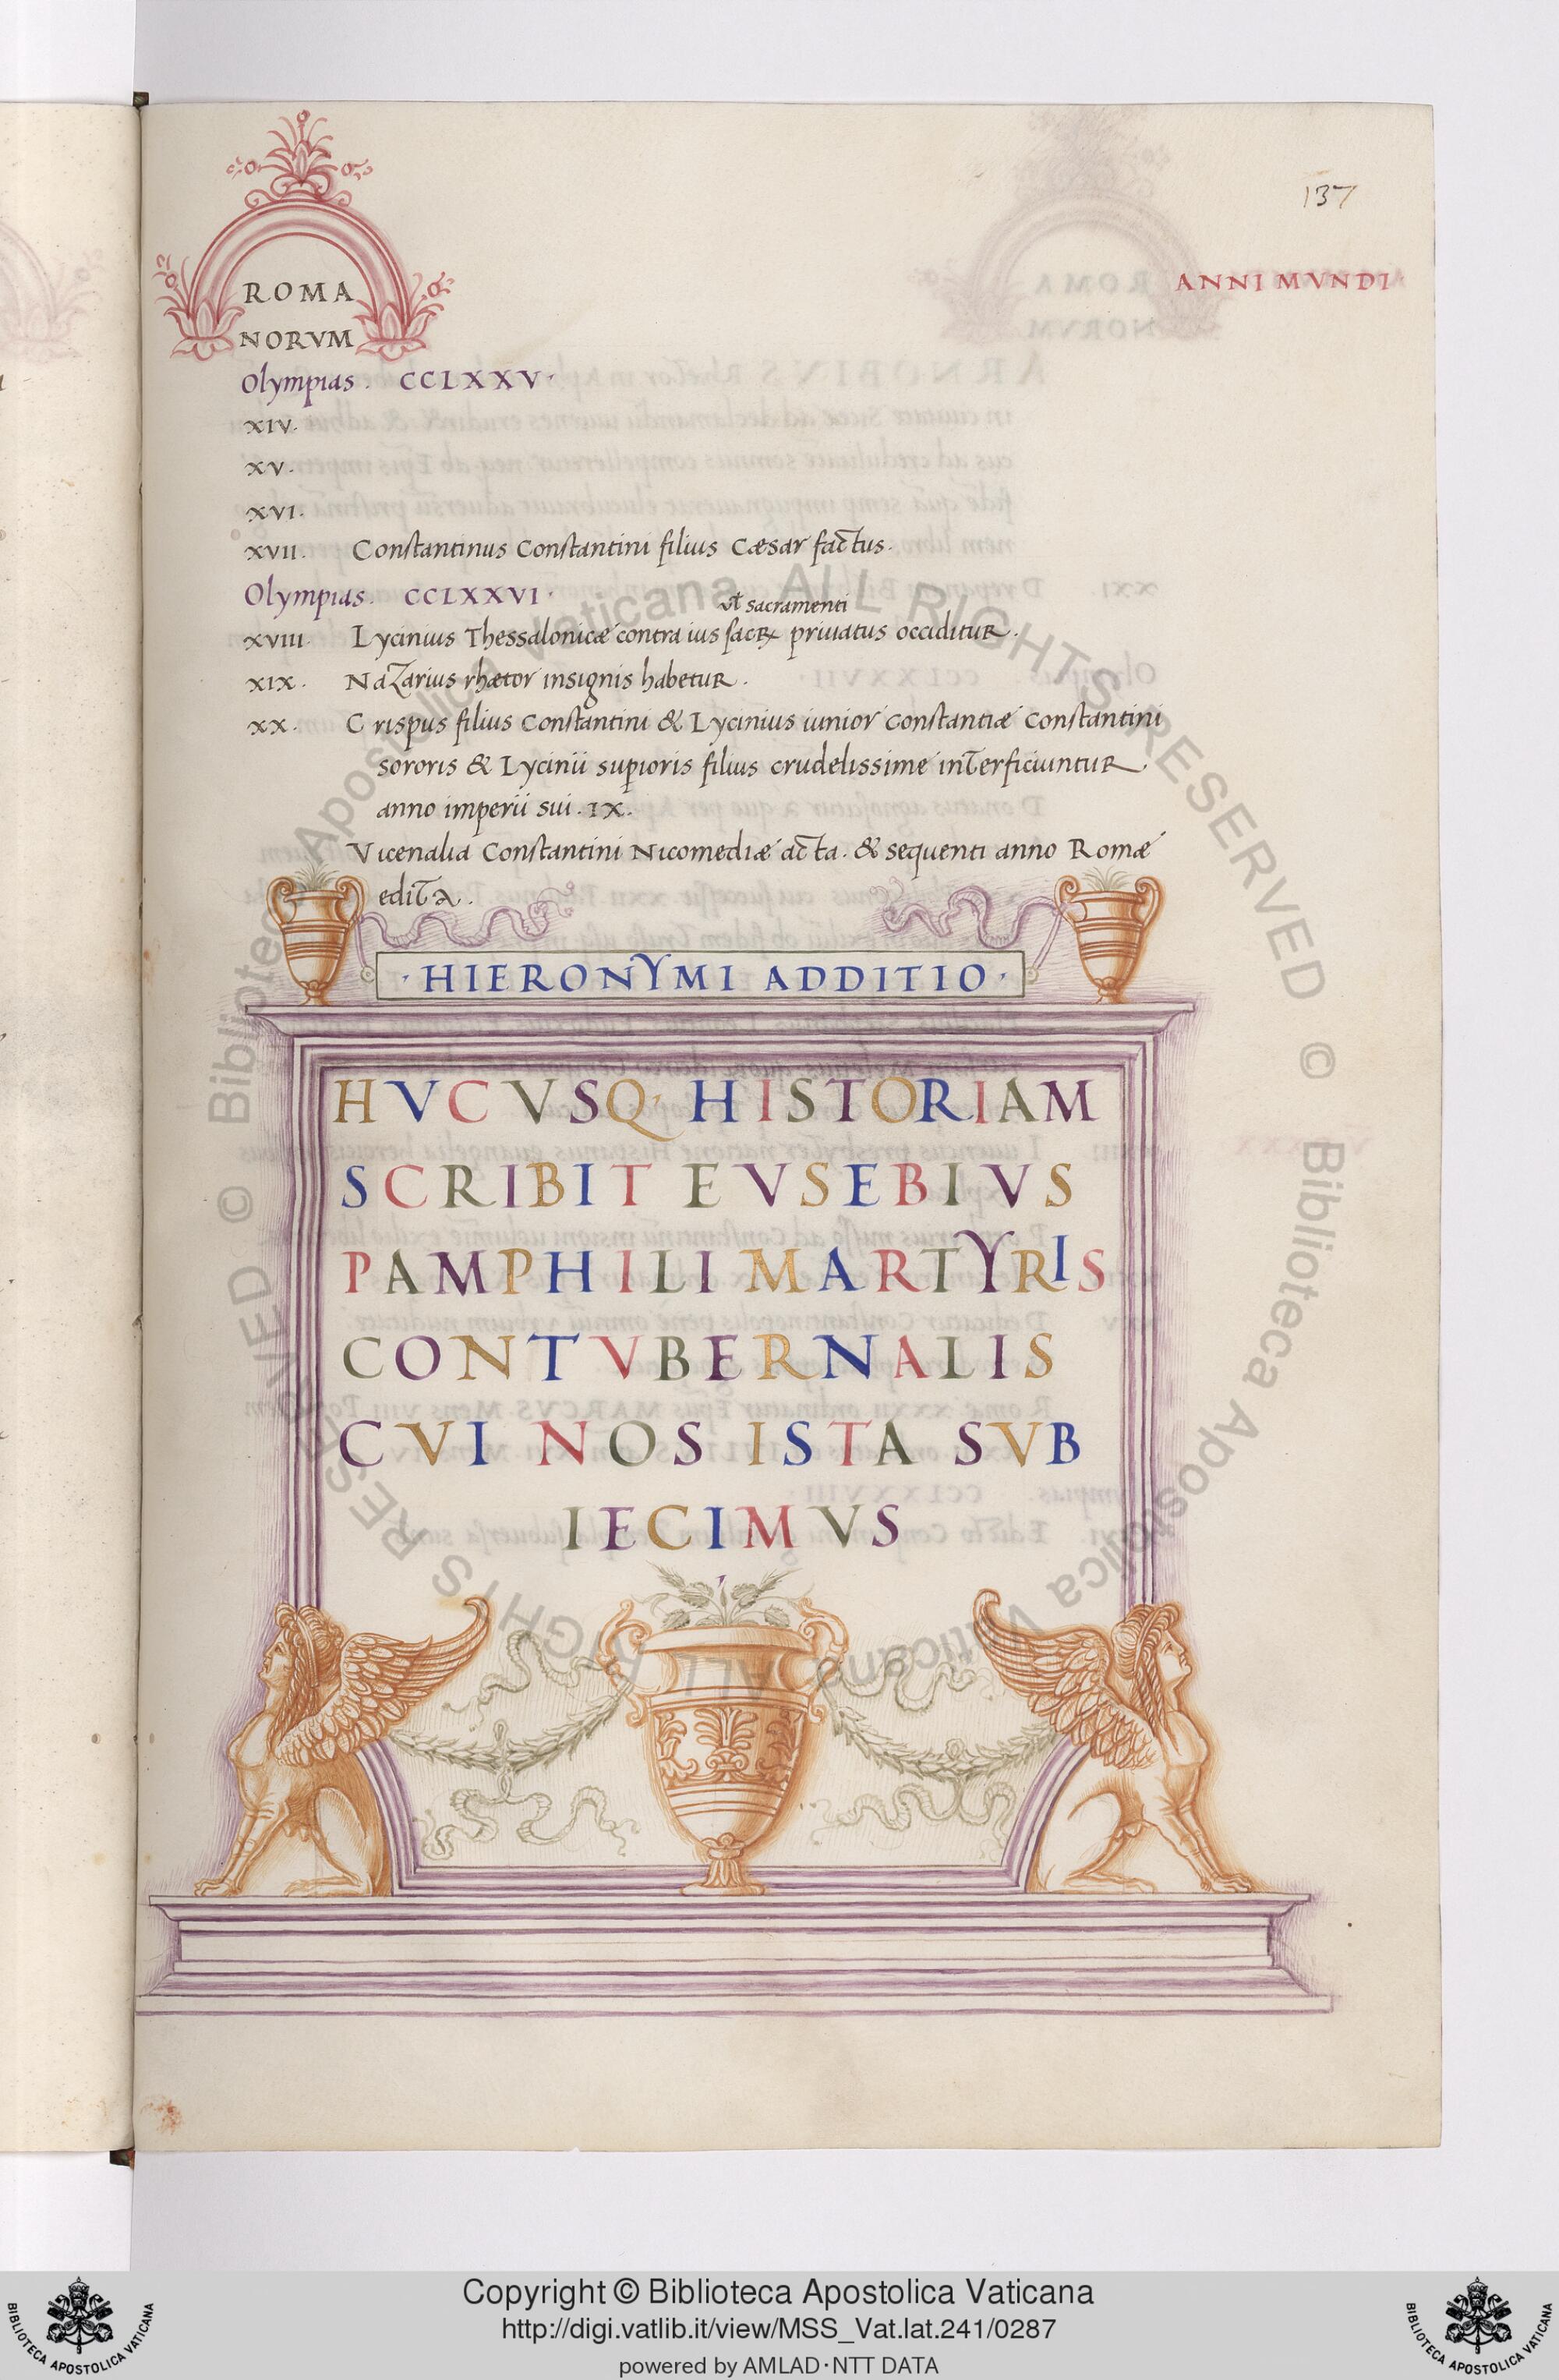 137
ROMA
NORVM
ANNI MVNDI
Olympias. CCLXXV.
XIV.
XV.
XVI.
XVII. Constantinus Constantini filius Cæsar factus.
Olympias. CCLXXVI.
vt sacramenti
XVIII. Lycinius Thessalonicæ contra ius sacꝝ priuatus occiditur.
XIX. Nazarius rhætor insignis habetur.
XX. Crispus filius Constantini & Lycinius iunior Constantiæ Constantini
sororis & Lycinii supioris filius crudelissime interficiuntur
anno imperii sui. IX.
Vicenalia Constantini Nicomediæ acta. & sequenti anno Romæ
edita.
· HIERONYMI ADDITIO ·
HVCVSQ· HISTORIAM
SCRIBIT EVSEBIVS
PAMPHILI MARTYRIS
CONTVBERNALIS
CVI NOS ISTA SVB
IECIMVS
© Biblioteca Apostolica Vaticana ALL RIGHTS RESERVED © Biblioteca Apostolica Vaticana ALL RIGHTS RESERVED
Copyright © Biblioteca Apostolica Vaticana
http://digi.vatlib.it/view/MSS_Vat.lat.241/0287
powered by AMLAD·NTT DATA
BIBLIOTECA APOSTOLICA VATICANA
BIBLIOTECA APOSTOLICA VATICANA